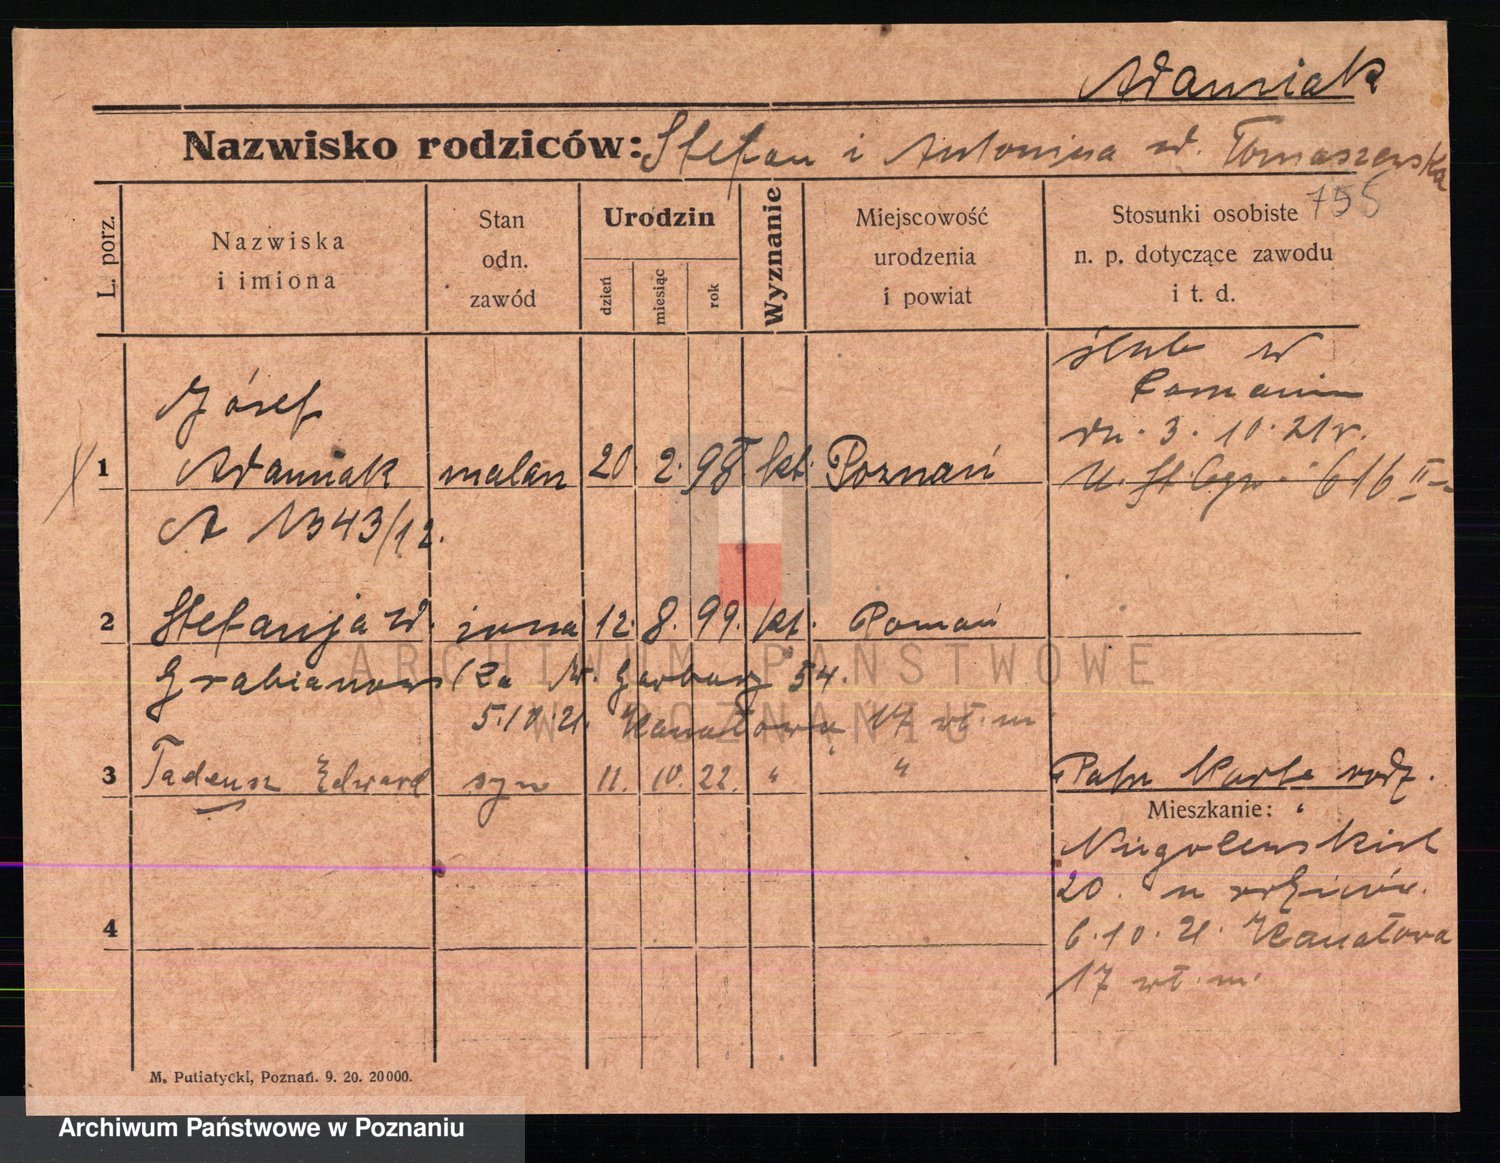 Adamiak
Nazwisko rodziców: Stefan i Antonina zd. Tomaszewska
755
L. porz.
Nazwiska
i imiona
Stan
odn.
zawód
Urodzin
dzień
miesiąc
rok
Wyznanie
Miejscowość
urodzenia
i powiat
Stosunki osobiste
n. p. dotyczące zawodu
i t. d.
ślub w
Poznaniu
dn. 3. 10. 21 r.
U. St. Cyw. 616 II
1
Józef
Adamiak malarz 20. 2. 98 kt. Poznań
A 1343/12.
2 Stefanja zd. żona 12. 8. 99. kt. Poznań
Grabianows ka W. Garbary 54.
5.10.21. Kanałowa 17 wł. m.
3 Tadeusz Edward syn 11. 10. 22. " "
Patrz Karta rodz.
Mieszkanie:
Niegolewskich
20. u rodziców.
6. 10. 21. Kanałowa
17 wł. m.
4
M. Putiatycki, Poznań. 9. 20. 20000.
ARCHIWUM PAŃSTWOWE
W POZNANIU
Archiwum Państwowe w Poznaniu